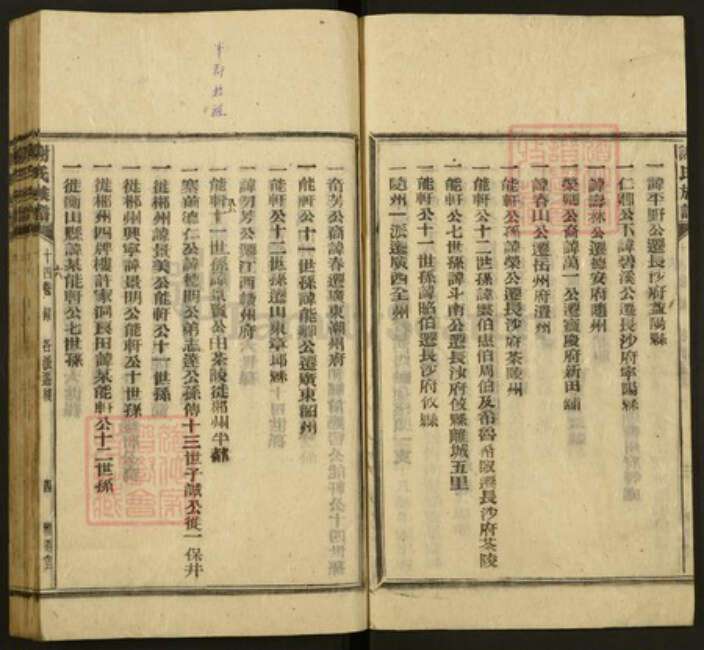 一諱平野公遷長沙府益陽縣
一仁卿公下諱碧溪公遷長沙府寧陽縣
一諱壽林公遷德安府隨州
一榮卿公裔諱萬一公遷寶陵府新田鋪
一諱春山公遷岳州府澧州
一能軒公孫諱榮公遷長沙府茶陵州
一能軒公十二世孫諱雲伯忠伯周伯及希魯希恢遷長沙府茶陵
一能軒公七世孫諱斗南公遷長沙府攸縣離城五里
一能軒公十一世孫諱昭伯遷長沙府攸縣
一隨州一派遷廣西全州
一希芳公裔諱春遷廣東潮州府
一能軒公十一世孫諱能卿公遷廣東韶州
一能軒公十二世孫遷山東章邱縣
一諱勿芳公遷江西贛州府
一能軒十一世孫諱景賢公由茶陵徙郴州牛
寨前德仁公諱德明公弟志達公孫傳十三世子誠公徙一保井
一徙郴州諱景美公能軒公十一世孫
一徙郴州興寧諱景明公能軒公十世孫
一徙郴州四牌樓許家洞良田諱某能軒公十二世孫
一徙衡山縣諱某能軒公七世孫
謝氏族譜
十四卷
四